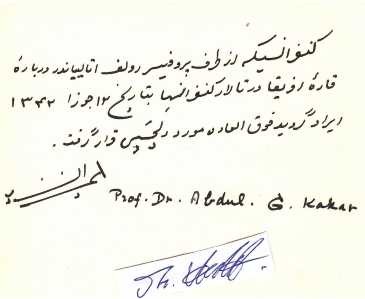 کنفرانسیکه از طرف پروفیسر رولف اتالیاندر دربارهٔ
قارهٔ افریقا در تالار کنفرانسها بتاریخ ۱۲ جوزا ۱۳۴۲
ایراد گردید فوق العاده مورد دلچسپی قرار گرفت.
Prof. Dr. Abdul. G. Kakar